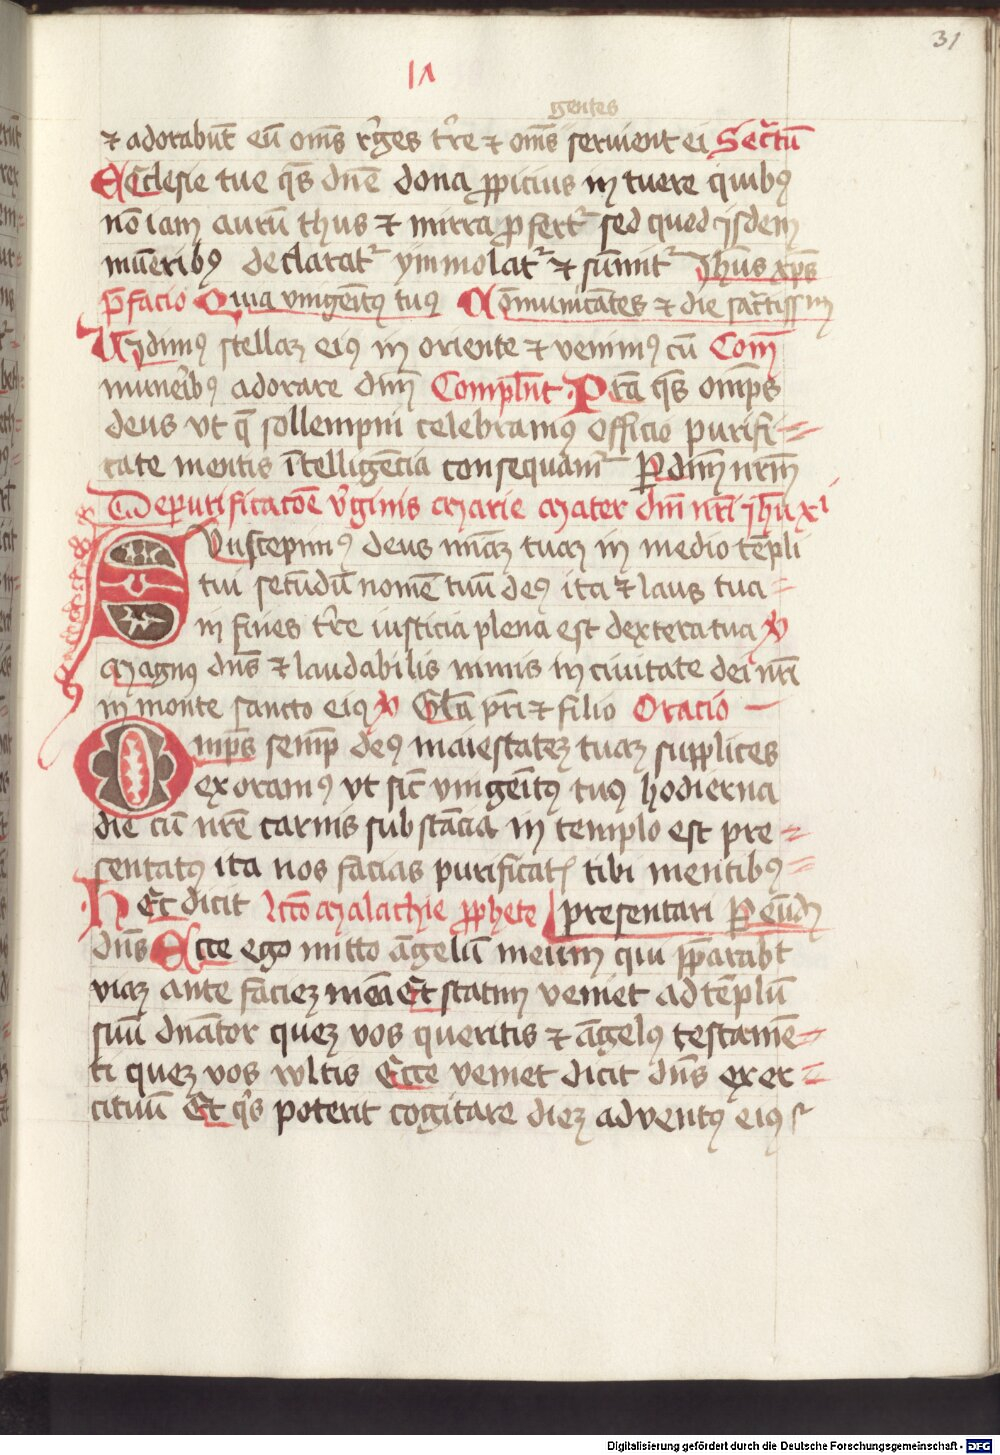 31
gentes
⁊ adorabūt eū om̄s r̓ges tr̄re ⁊ om̄s seruient ei Sec̄rtū
Ecclesie tue q̄s dn̄e dona ꝓpicius in tuere quibꝰ
nō iam aurū thus ⁊ mirra ꝓfert᷑ sed quod ijsdem
mūeribꝰ declarat᷑ ymmolat᷑ ⁊ sūmit᷑ Jhūs xp̄s
P̄facio Quia vnigēitꝰ tuꝰ Cōmunicātes ⁊ die sac̄rtissm
Vidimꝰ stellaꝫ eiꝰ in oriente ⁊ venimꝰ cū Com̄
muneribꝰ adorare dn̄m Compl̄nt P̄ta q̄s omp̄s
deus vt q̄ sollempni celebramꝰ officio purifi⸗
cate mentis ītelligēcia consequam᷑ P̲ dn̄m nr̄m
De purificatōe v̓ginis Marie Mater dn̄i nr̄i jh̄u xi
Suscepimꝰ deus mīaꝫ tuaꝫ in medio tēpli
tui secūdū nomē tuū deꝰ ita ⁊ laus tua⸗
in fines tr̄re iusticia plena est dextera tua v̓
Magnꝰ dn̄s ⁊ laudabilis nimis in ciuitate dei nr̄i
in monte sancto eiꝰ v̓ Gl̄a pr̄i ⁊ filio Oracio
Omp̄s semp̲ deꝰ maiestateꝫ tuaꝫ supplices
exoramꝰ vt sic̄ vnigēitꝰ tuꝰ hodierna
die cū nr̄e carnis substācia in templo est pre⸗
sentatꝰ ita nos facias purificatꝭ tibi mentibꝰ⸗
Hec dicit lcc̄o Malachie ꝓphete presentari P̲ eūdm
dn̄s Ecce ego mitto āgelū meum qui p̄parabt
viaꝫ ante facieꝫ meā Et statim veniet ad tēplū
suū dn̄ator queꝫ vos queritis ⁊ āgelꝰ testamē⸗
ti queꝫ vos vultis Ecce veniet dicit dn̄s exer⸗
cituū Et q̓s poterit cogitare dieꝫ aduentꝰ eiꝰ
Digitalisierung gefördert durch die Deutsche Forschungsgemeinschaft - DFG